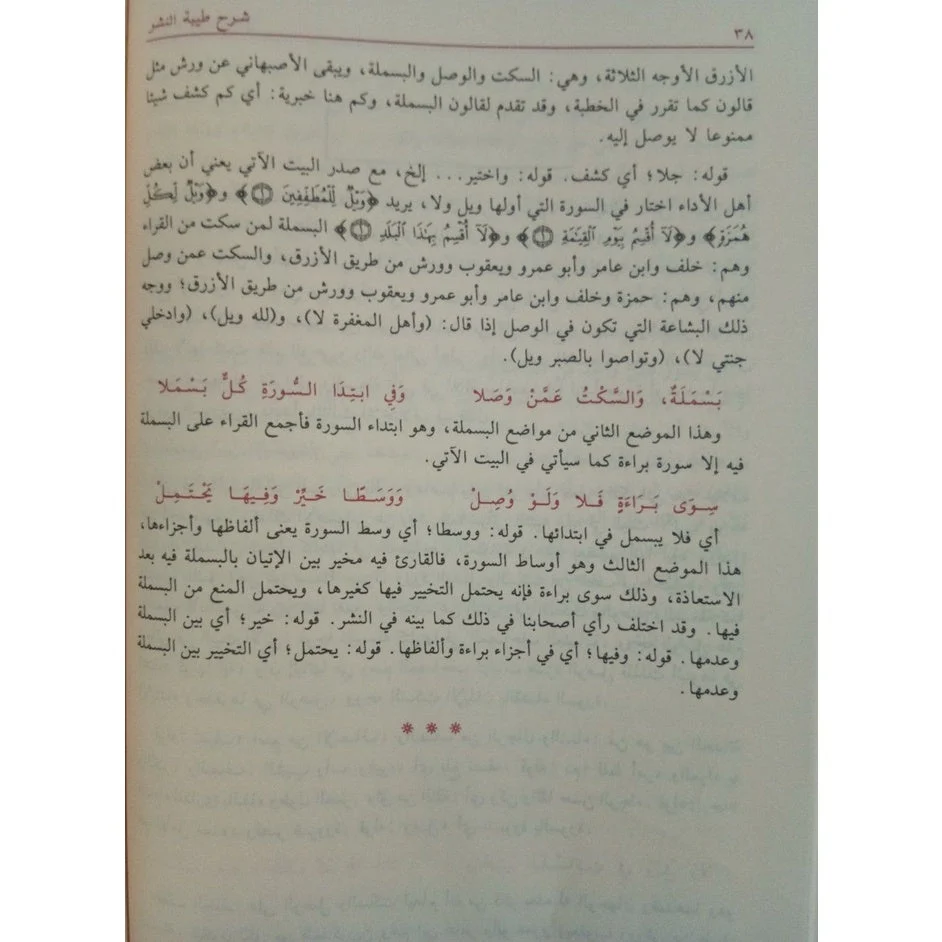 ٣٨ شرح طيبة النشر
الأزرق الأوجه الثلاثة، وهي: السكت والوصل والبسملة، ويبقى الأصبهاني عن ورش مثل
قالون كما تقرر في الخطبة، وقد تقدم لقالون البسملة، وكم هنا خبرية: أي كم كشف شيئا
ممنوعا لا يوصل إليه.
قوله: جلا؛ أي كشف. قوله: واختير... إلخ، مع صدر البيت الآتي يعني أن بعض
أهل الأداء اختار في السورة التي أولها ويل ولا، يريد ﴿وَيْلٌ لِّلْمُطَفِّفِينَ ۝١﴾ و﴿وَيْلٌ لِّكُلِّ
هُمَزَةٍ﴾ و﴿لَآ أُقْسِمُ بِيَوْمِ ٱلْقِيَٰمَةِ ۝١﴾ و﴿لَآ أُقْسِمُ بِهَٰذَا ٱلْبَلَدِ ۝١﴾ البسملة لمن سكت من القراء
وهم: خلف وابن عامر وأبو عمرو ويعقوب وورش من طريق الأزرق، والسكت عمن وصل
منهم، وهم: حمزة وخلف وابن عامر وأبو عمرو ويعقوب وورش من طريق الأزرق؛ ووجه
ذلك البشاعة التي تكون في الوصل إذا قال: (وأهل المغفرة لا)، و(لله ويل)، (وادخلي
جنتي لا)، (وتواصوا بالصبر ويل).
بَسْمَلَةٌ، وَالسَّكْتُ عَمَّنْ وَصَلا وَفِي ابتِدَا السُّورَةِ كُلٌّ بَسْمَلا
وهذا الموضع الثاني من مواضع البسملة، وهو ابتداء السورة فأجمع القراء على البسملة
فيه إلا سورة براءة كما سيأتي في البيت الآتي.
سِوَى بَرَاءَةٍ فَلا وَلَوْ وُصِلْ وَوَسَطًا خَيِّرْ وَفِيهَا يَحْتَمِلْ
أي فلا يبسمل في ابتدائها. قوله: ووسطا؛ أي وسط السورة يعنى ألفاظها وأجزاءها،
هذا الموضع الثالث وهو أوساط السورة، فالقارئ فيه مخير بين الإتيان بالبسملة فيه بعد
الاستعاذة، وذلك سوى براءة فإنه يحتمل التخيير فيها كغيرها، ويحتمل المنع من البسملة
فيها. وقد اختلف رأي أصحابنا في ذلك كما بينه في النشر. قوله: خير؛ أي بين البسملة
وعدمها. قوله: وفيها؛ أي في أجزاء براءة وألفاظها. قوله: يحتمل؛ أي التخيير بين البسملة
وعدمها.